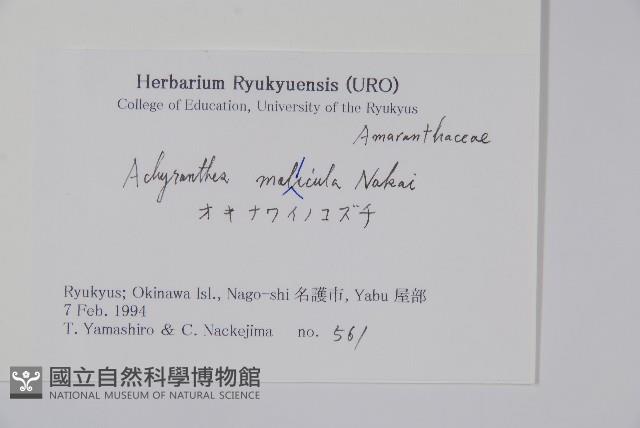 Herbarium Ryukyuensis (URO)
College of Education, University of the Ryukyus
Amaranthaceae
Achyranthea malicula Nakai
オキナワイノコズチ
Ryukyus; Okinawa Isl., Nago-shi 名護市, Yabu 屋部
7 Feb. 1994
T. Yamashiro & C. Nackejima no. 561
國立自然科學博物館
NATIONAL MUSEUM OF NATURAL SCIENCE